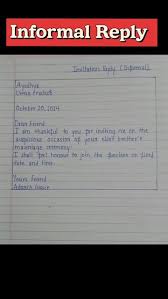 Informal Reply
Invitation Reply (Informal)
Ayodhya
Uttar Pradesh
October 20, 2024
Dear Friend
I am thankful to you for inviting me on the
auspicious occasion of your elder brother's
marriage ceremony.
I shall feel honour to join the function on fixed
date and time.
Yours friend